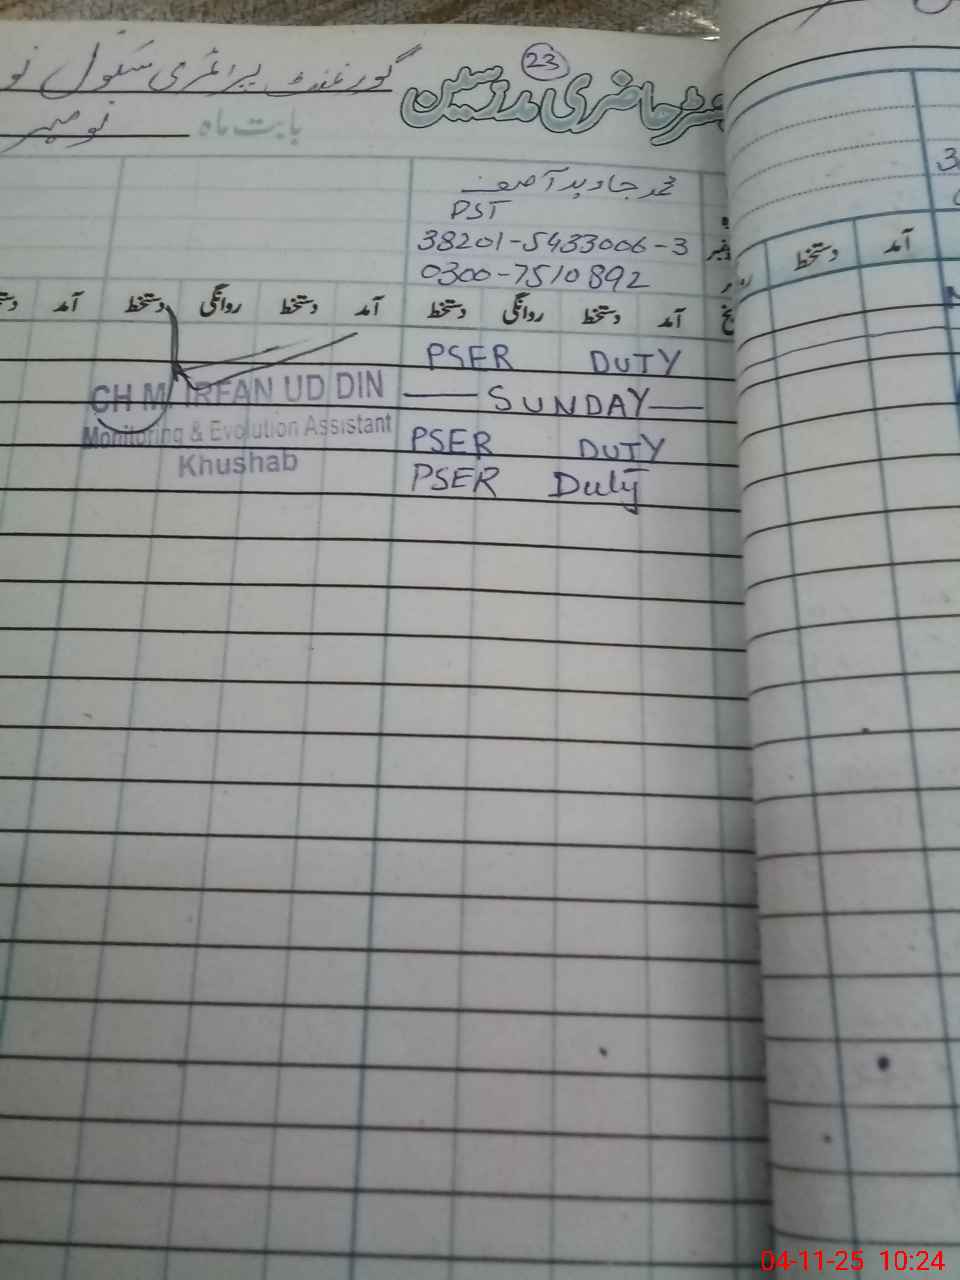 23
گورنمنٹ پرائمری سکول
حاضری مدرسین
بابت ماہ نومبر
محمد جاوید آصف
PST
38201-5433006-3
0300-7510892
آمد دستخط روانگی دستخط آمد دستخط روانگی دستخط آمد
آمد دستخط
PSER DUTY
SUNDAY
PSER DUTY
PSER Duty
CH M. IRFAN UD DIN
Monitoring & Evolution Assistant
Khushab
04-11-25 10:24